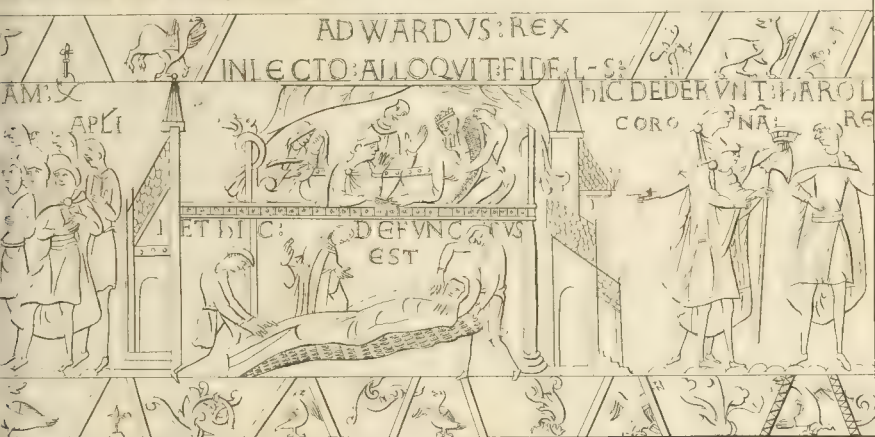 ADWARDVS: REX
INLECTO: ALLOQVIT: FIDEL-S:
AM: X
APLI
hIC DEDERVNT: hAROL
CORO NA RE
ET hIC: DEFVNCTVS
EST